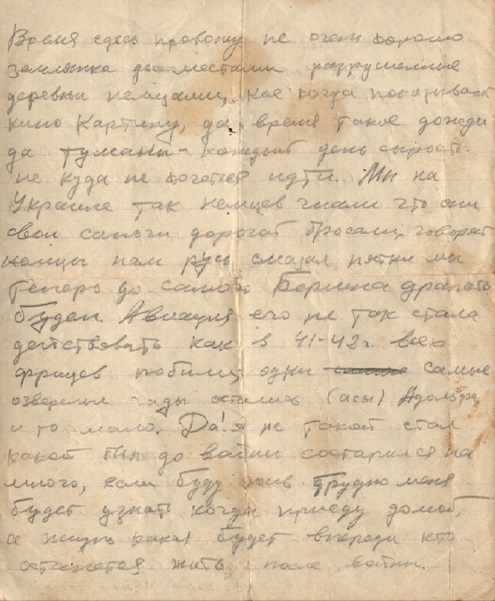 Время здесь провожу не очень хорошо
землянка да местами разрушенные
деревни немцами, кое когда показывают
кино картину, да время такое дожди
да туманы - каждый день сырость
не куда не хочется идти. Мы на
Украине так немцев гнали что они
свои сапоги дорогой бросали, говорят
немцы нам русь смазал пятки мы
теперь до самого Берлина драпать
будем. Авиация его не так стала
действовать как в 41-42г. всех
фрицев побили, одни самые
озверелые гады остались (асы) Адольфа
и то мало. Да! я не такой стал
какой был до войны состарился на
много, если буду жив трудно меня
будет узнать когда приеду домой,
а жизнь какая будет впереди кто
останется жить после войны.